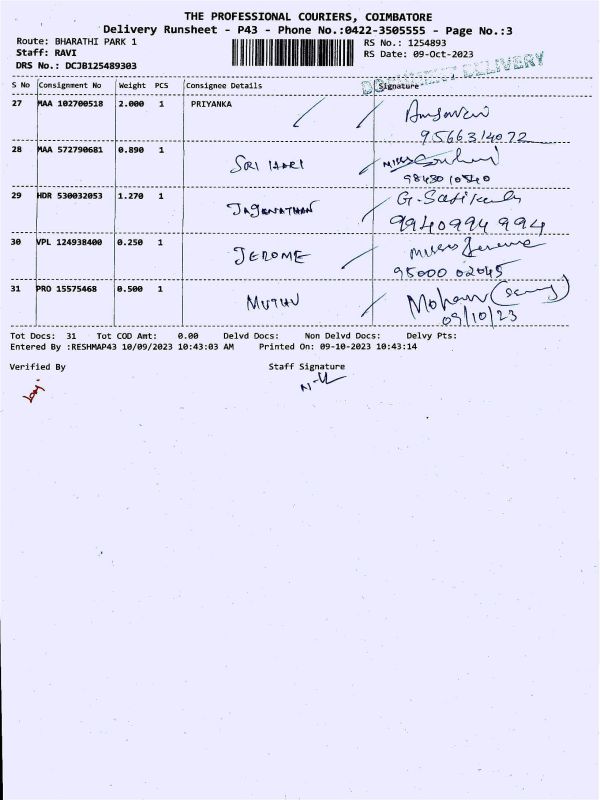 THE PROFESSIONAL COURIERS, COIMBATORE
Delivery Runsheet - P43 - Phone No.:0422-3505555 - Page No.:3
Route: BHARATHI PARK 1 RS No.: 1254893
Staff: RAVI RS Date: 09-Oct-2023
DRS No.: DCJB125489303
DOCUMENT DELIVERY
S No Consignment No Weight PCS Consignee Details Signature
27 MAA 102700518 2.000 1 PRIYANKA
9566314072
28 MAA 572790681 0.890 1 SRI HARI
9843010540
29 HDR 530032053 1.270 1 JAGANATHAN
9940994 994
30 VPL 124938400 0.250 1 JEROME
95000 02045
31 PRO 15575468 0.500 1 MUTHU Mohan
09/10/23
Tot Docs: 31 Tot COD Amt: 0.00 Delvd Docs: Non Delvd Docs: Delvy Pts:
Entered By :RESHMAP43 10/09/2023 10:43:03 AM Printed On: 09-10-2023 10:43:14
Verified By Staff Signature